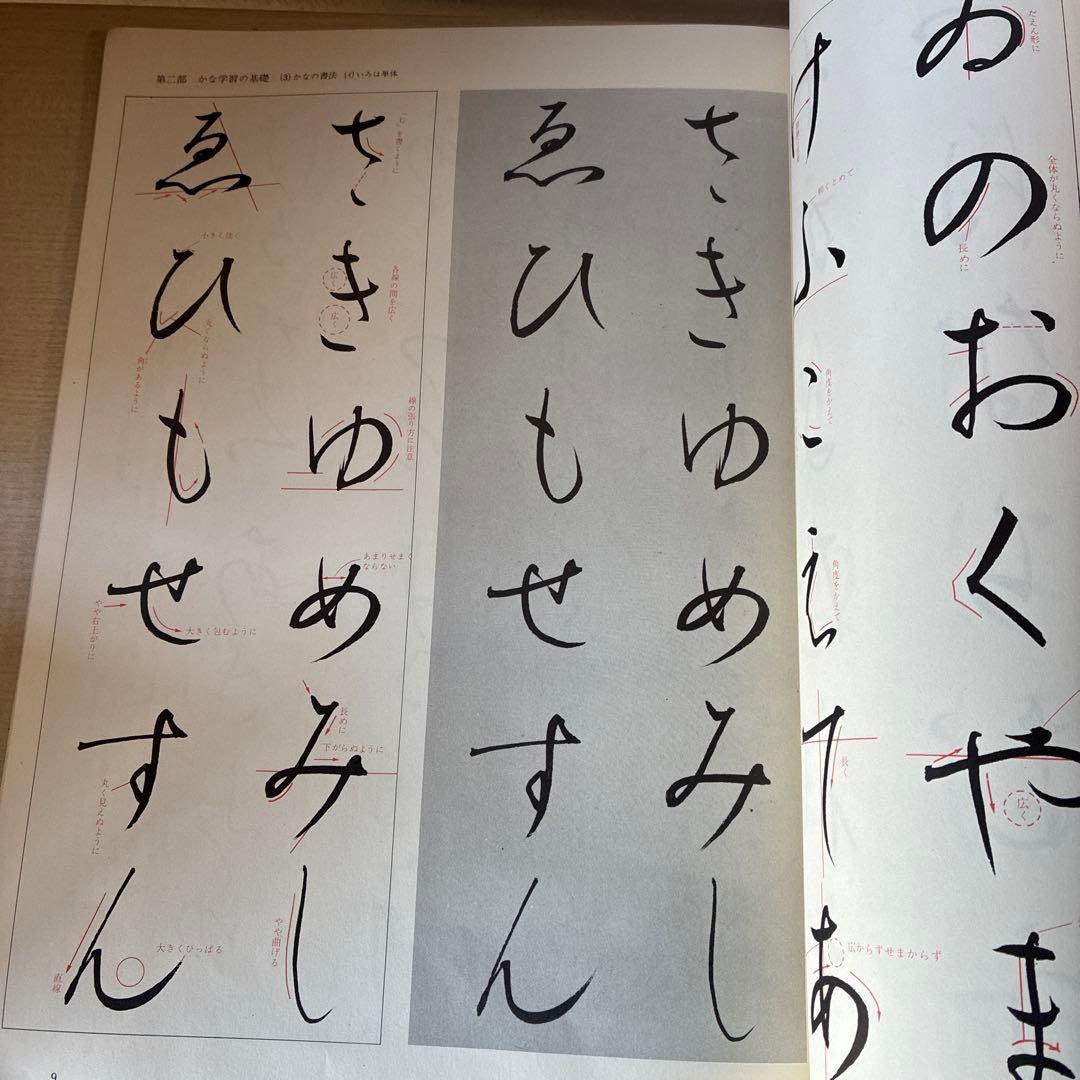 第二部 かな学習の基礎 (3)かなの書法 (イ)いろは単体
ゐのおくやま
だえん形に
全体が丸くならぬように
長めに
広く
けふこえてあ
軽くとめて
角度をかえて
角度をかえて
長く
広からずせまからず
さきゆめみし
ゑひもせすん
さきゆめみし
「七」を書くように
各線の間を広く
広く
広く
線の張り方に注意
あまりせまく
ならない
長めに
下がらぬように
やや曲げる
ゑひもせすん
小さく強く
丸くならぬように
角があるように
やや右上がりに
大きく包むように
丸く見えぬように
大きくひっぱる
直線
9